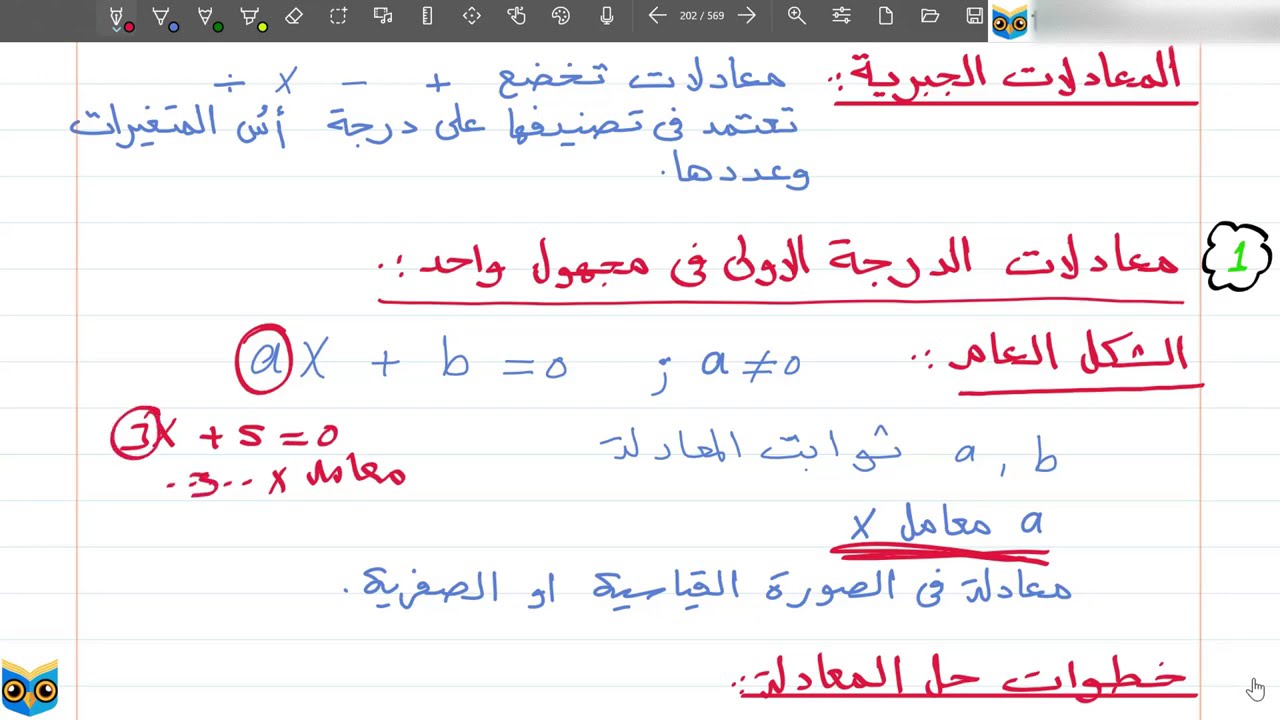 202 / 569
المعادلات الجبرية :.
معادلات تخضع + - × ÷
تعتمد فى تصنيفها على درجة أسُ المتغيرات
وعددها.
1
معادلات الدرجة الاولى فى مجهول واحد :.
الشكل العام :.
aX + b = 0 ; a ≠ 0
3X + 5 = 0
معامل X ..3..
a , b ثوابت المعادلة
a معامل X
معادلة فى الصورة القياسية او الصفرية.
خطوات حل المعادلة :.